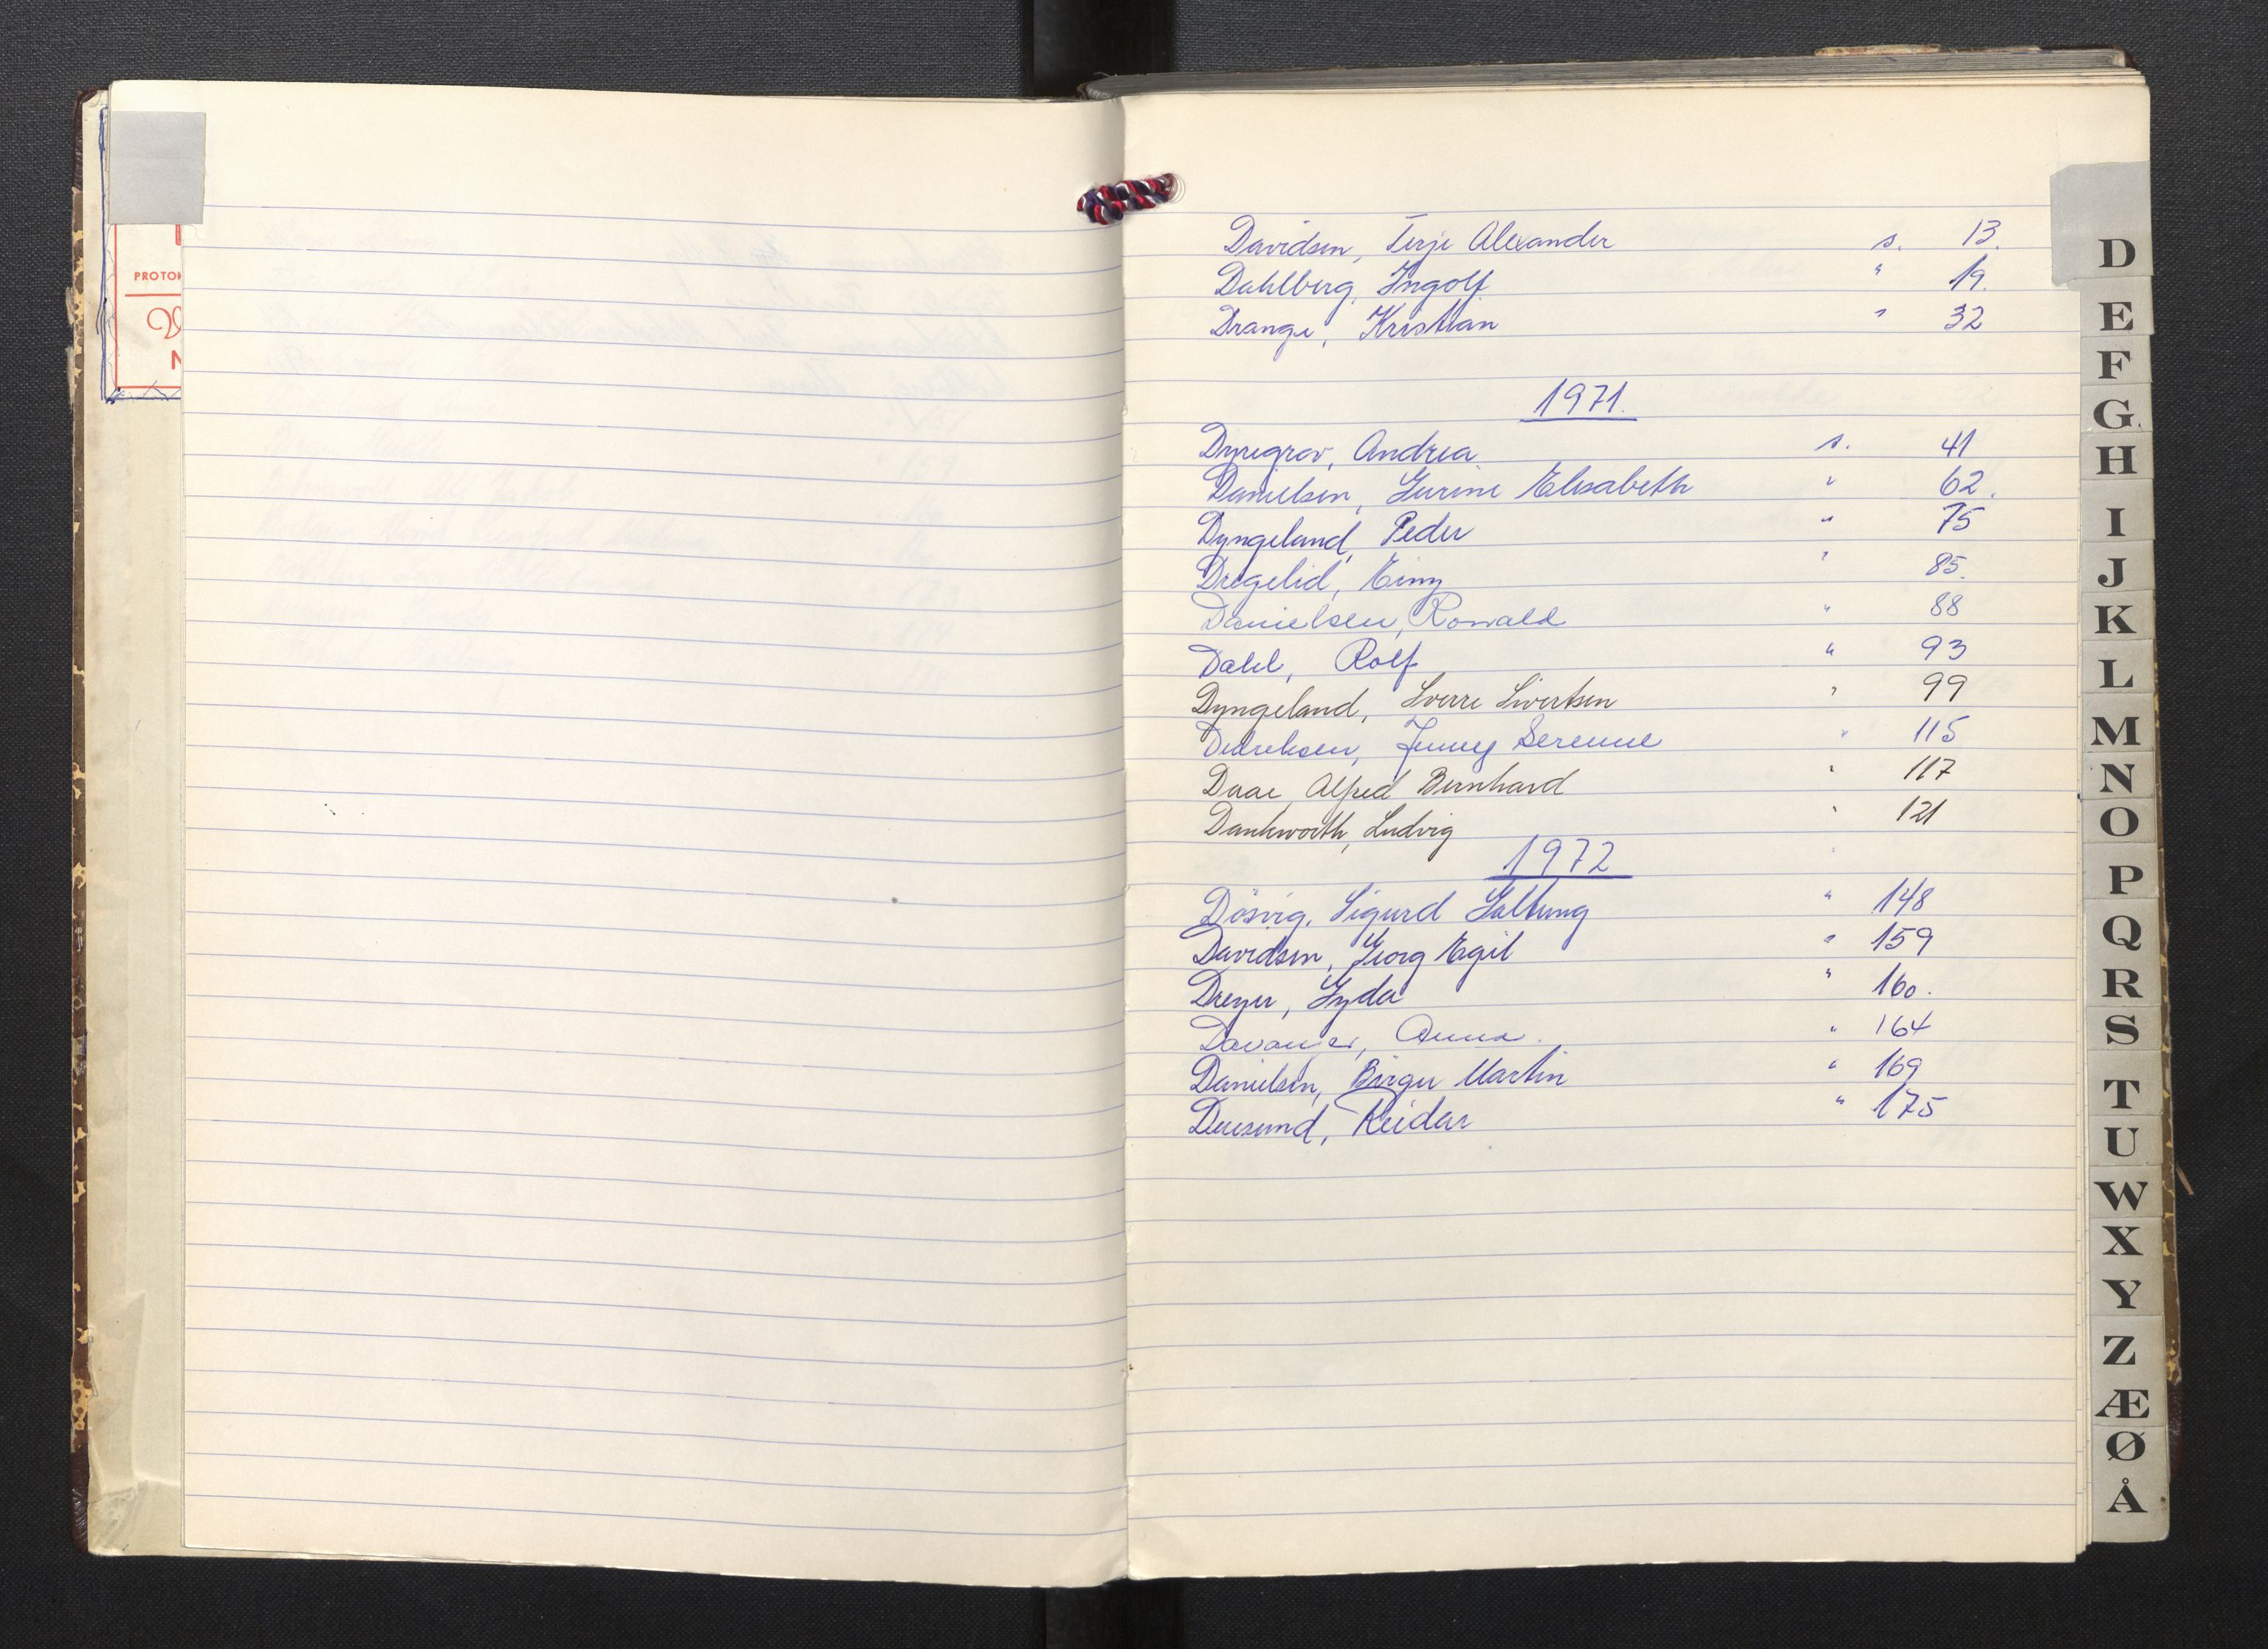 PROTOK
N
Davidsen, Terje Alexander s. 13.
Dahlberg, Ingolf " 19.
Drange, Kristian " 32
1971.
Dyregrov, Andrea s. 41
Danielsen, Gurine Elisabeth " 62.
Dyngeland, Peder " 75
Dregelid, Einy " 85.
Danielsen, Ronald " 88
Dahl, Rolf " 93
Dyngeland, Sverre Sivertsen " 99
Didriksen, Jenny Serenne " 115
Daae, Alfred Bernhard " 117
Dankworth, Ludvig " 121
1972
Døsvig, Sigurd Galtung " 148
Davidsen, Georg Egil " 159
Dreyer, Gyda " 160.
Davanger, Anna. " 164
Danielsen, Birger Martin " 169
Reidar " 175
D
E
F
G
H
I
J
K
L
M
N
O
P
Q
R
S
T
U
W
X
Y
Z
Æ
Ø
Å